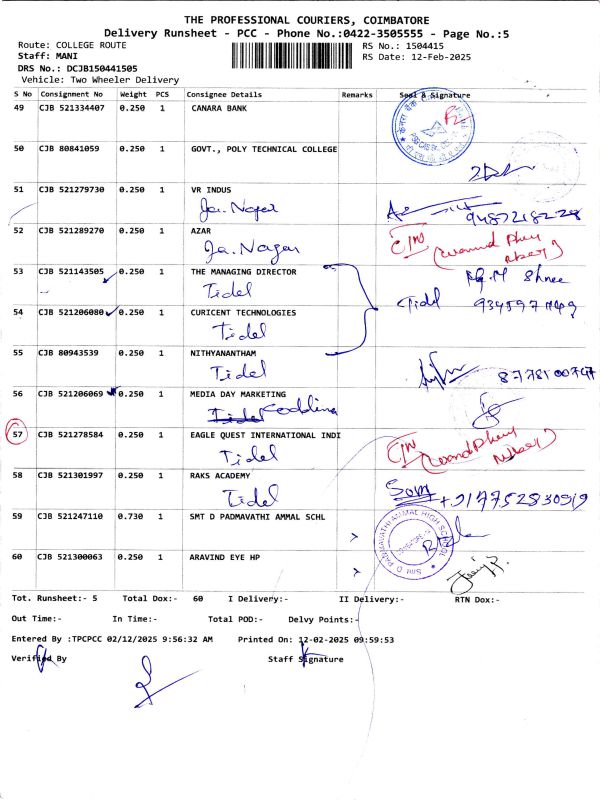 THE PROFESSIONAL COURIERS, COIMBATORE
Delivery Runsheet - PCC - Phone No.:0422-3505555 - Page No.:5
Route: COLLEGE ROUTE RS No.: 1504415
Staff: MANI RS Date: 12-Feb-2025
DRS No.: DCJB150441505
Vehicle: Two Wheeler Delivery
S No Consignment No Weight PCS Consignee Details Remarks Seal & Signature
49 CJB 521334407 0.250 1 CANARA BANK
50 CJB 80841059 0.250 1 GOVT., POLY TECHNICAL COLLEGE
51 CJB 521279730 0.250 1 VR INDUS
Ja. Nager 9487218228
52 CJB 521289270 0.250 1 AZAR
Ja. Nagar
53 CJB 521143505 0.250 1 THE MANAGING DIRECTOR
Tidel
54 CJB 521206080 0.250 1 CURICENT TECHNOLOGIES
Tidel
55 CJB 80943539 0.250 1 NITHYANANTHAM
Tidel 8778100747
56 CJB 521206069 0.250 1 MEDIA DAY MARKETING
57 CJB 521278584 0.250 1 EAGLE QUEST INTERNATIONAL INDI
Tidel
58 CJB 521301997 0.250 1 RAKS ACADEMY
Tidel
59 CJB 521247110 0.730 1 SMT D PADMAVATHI AMMAL SCHL
SMT D PADMAVATHI AMMAL HIGH SCHOOL
60 CJB 521300063 0.250 1 ARAVIND EYE HP
Tot. Runsheet:- 5 Total Dox:- 60 I Delivery:- II Delivery:- RTN Dox:-
Out Time:- In Time:- Total POD:- Delvy Points:-
Entered By :TPCPCC 02/12/2025 9:56:32 AM Printed On: 12-02-2025 09:59:53
Verified By Staff Signature